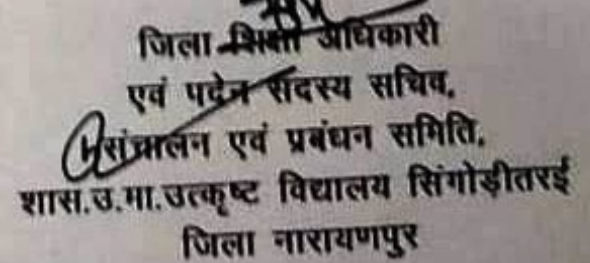 जिला शिक्षा अधिकारी
एवं पदेन सदस्य सचिव,
संचालन एवं प्रबंधन समिति,
शास.उ.मा.उत्कृष्ट विद्यालय सिंगोड़ीतरई
जिला नारायणपुर